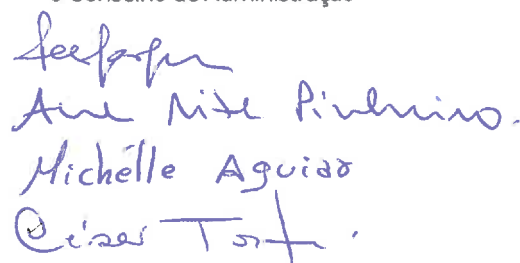 O Conselho de Administração
Ana Rita Pinheiro.
Michélle Aguiar
César